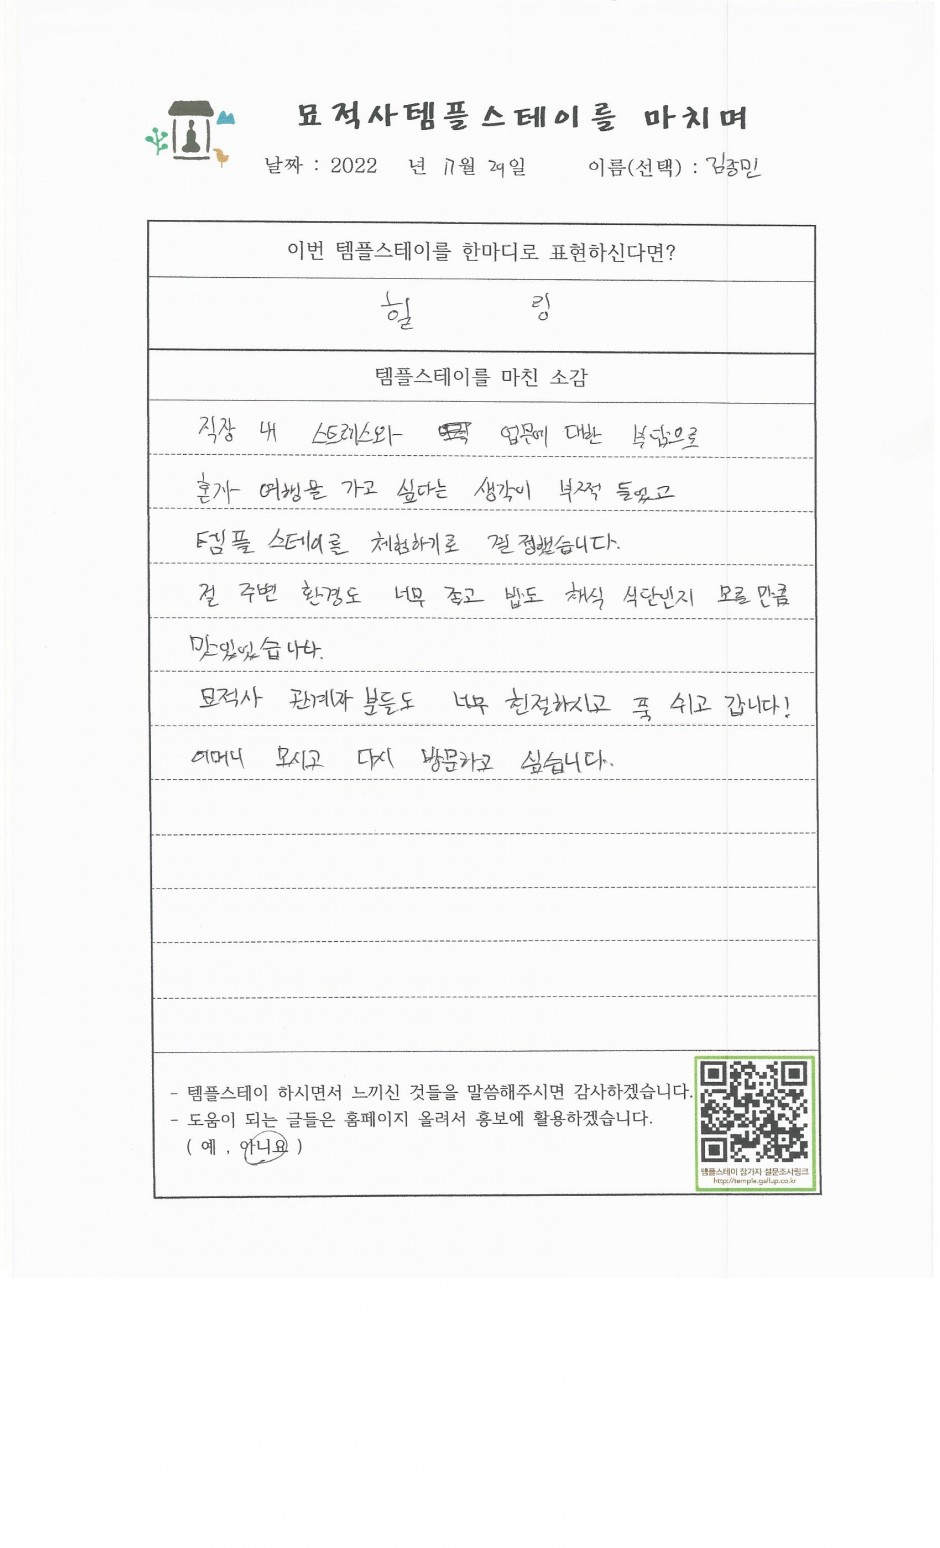 묘적사템플스테이를 마치며
날짜 : 2022 년 11월 29일 이름(선택) : 김종민
이번 템플스테이를 한마디로 표현하신다면?
힐 링
템플스테이를 마친 소감
직장 내 스트레스와 업무에 대한 부담으로
혼자 여행을 가고 싶다는 생각이 부쩍 들었고
템플 스테이를 체험하기로 결정했습니다.
절 주변 환경도 너무 좋고 밥도 채식 식단인지 모를 만큼
맛있었습니다.
묘적사 관계자 분들도 너무 친절하시고 푹 쉬고 갑니다!
어머니 모시고 다시 방문하고 싶습니다.
- 템플스테이 하시면서 느끼신 것들을 말씀해주시면 감사하겠습니다.
- 도움이 되는 글들은 홈페이지 올려서 홍보에 활용하겠습니다.
( 예 , 아니요 )
템플스테이 참가자 설문조사링크
http://temple.gallup.co.kr